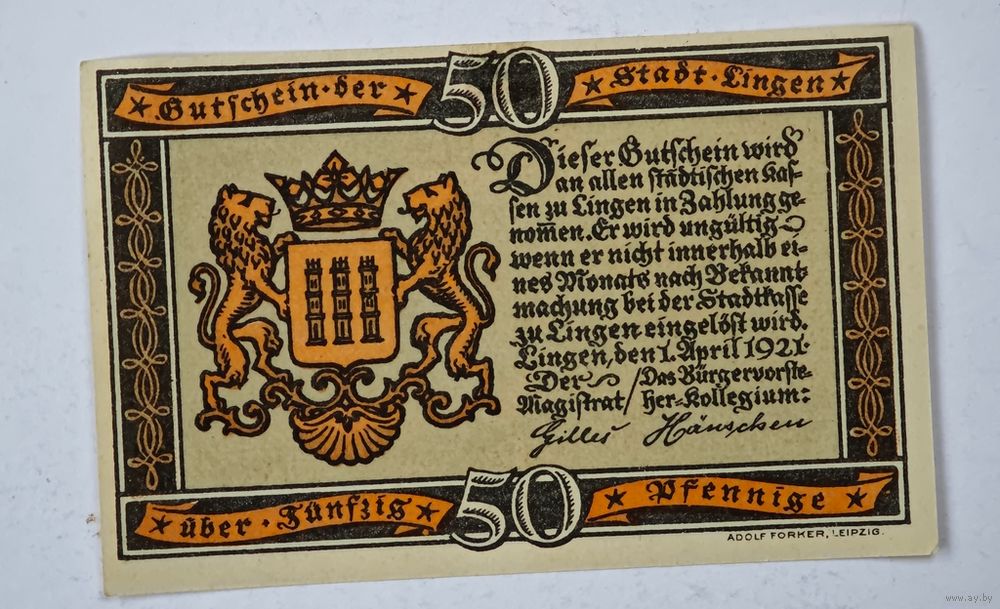 Gutschein·der
50
Stadt·Lingen
Dieser Gutschein wird
an allen städtischen Kas-
sen zu Lingen in Zahlung ge-
nom̅en. Er wird ungültig
wenn er nicht innerhalb ei-
nes Monats nach Bekannt-
machung bei der Stadtkasse
zu Lingen eingelöst wird.
Lingen, den 1. April 1921·
Der / Das Bürgervorste-
Magistrat / her-Kollegium:
Gilles Hänschen
über·Fünfzig
50
Pfennige
ADOLF FORKER, LEIPZIG.
www.ay.by